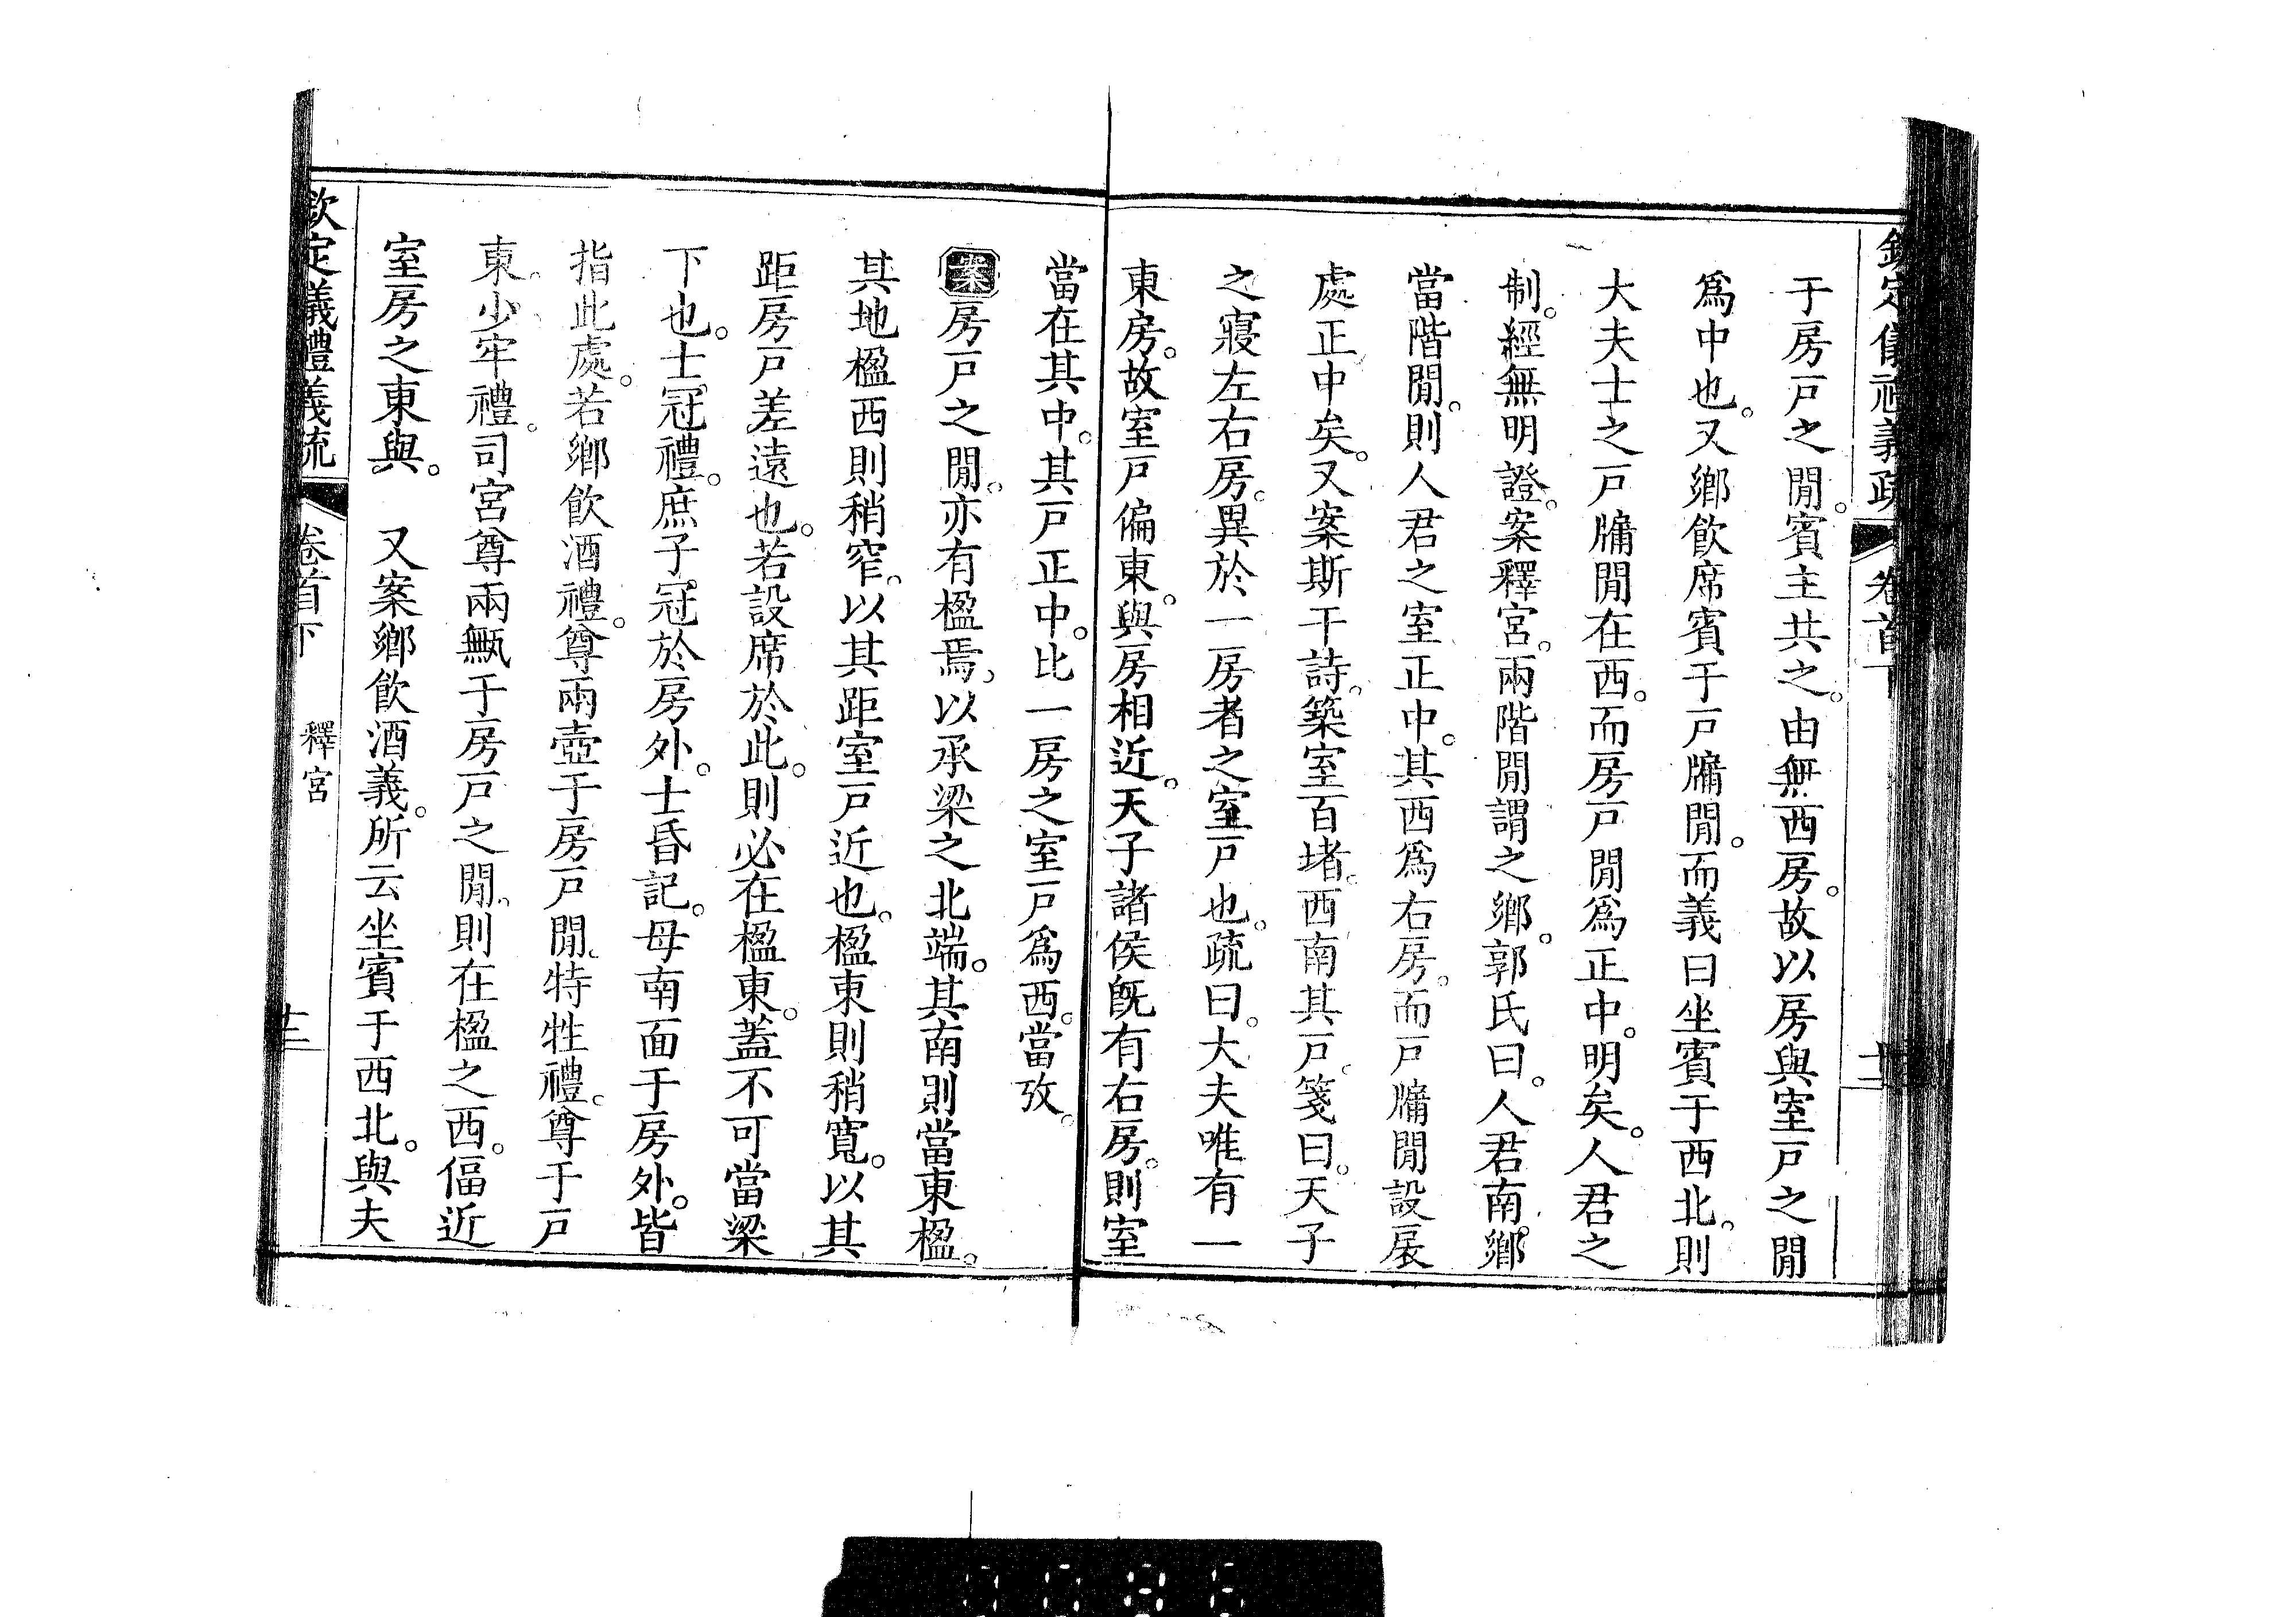 欽定儀禮義疏　卷首下
于房戸之閒。賓主共之。由無西房。故以房與室戸之閒
爲中也。又鄉飮席賓于戸牖閒。而義曰坐賓于西北。則
大夫士之戸牖閒在西。而房戸閒爲正中。明矣。人君之
制。經無明證。案釋宮。兩階閒謂之鄉。郭氏曰。人君南鄉
當階閒。則人君之室正中。其西爲右房。而戸牖閒設扆
處正中矣。又案斯干詩。築室百堵。西南其戸。箋曰。天子
之寢左右房。異於一房者之室戸也。疏曰。大夫唯有一
東房。故室戸偏東。與房相近。天子諸侯旣有右房。則室
當在其中。其戸正中。比一房之室戸爲西。當攷。
案房戸之閒。亦有楹焉。以承梁之北端。其南則當東楹。
其地楹西則稍窄。以其距室戸近也。楹東則稍寬。以其
距房戸差遠也。若設席於此。則必在楹東。蓋不可當梁
下也。士冠禮。庶子冠於房外。士昏記。母南面于房外。皆
指此處。若鄉飮酒禮。尊兩壺于房戸閒。特牲禮。尊于戸
東。少牢禮。司宮尊兩甒于房戸之閒。則在楹之西。偪近
室房之東與。　又案鄉飮酒義。所云坐賓于西北。與夫
欽定儀禮義疏　卷首下　釋宮　十三